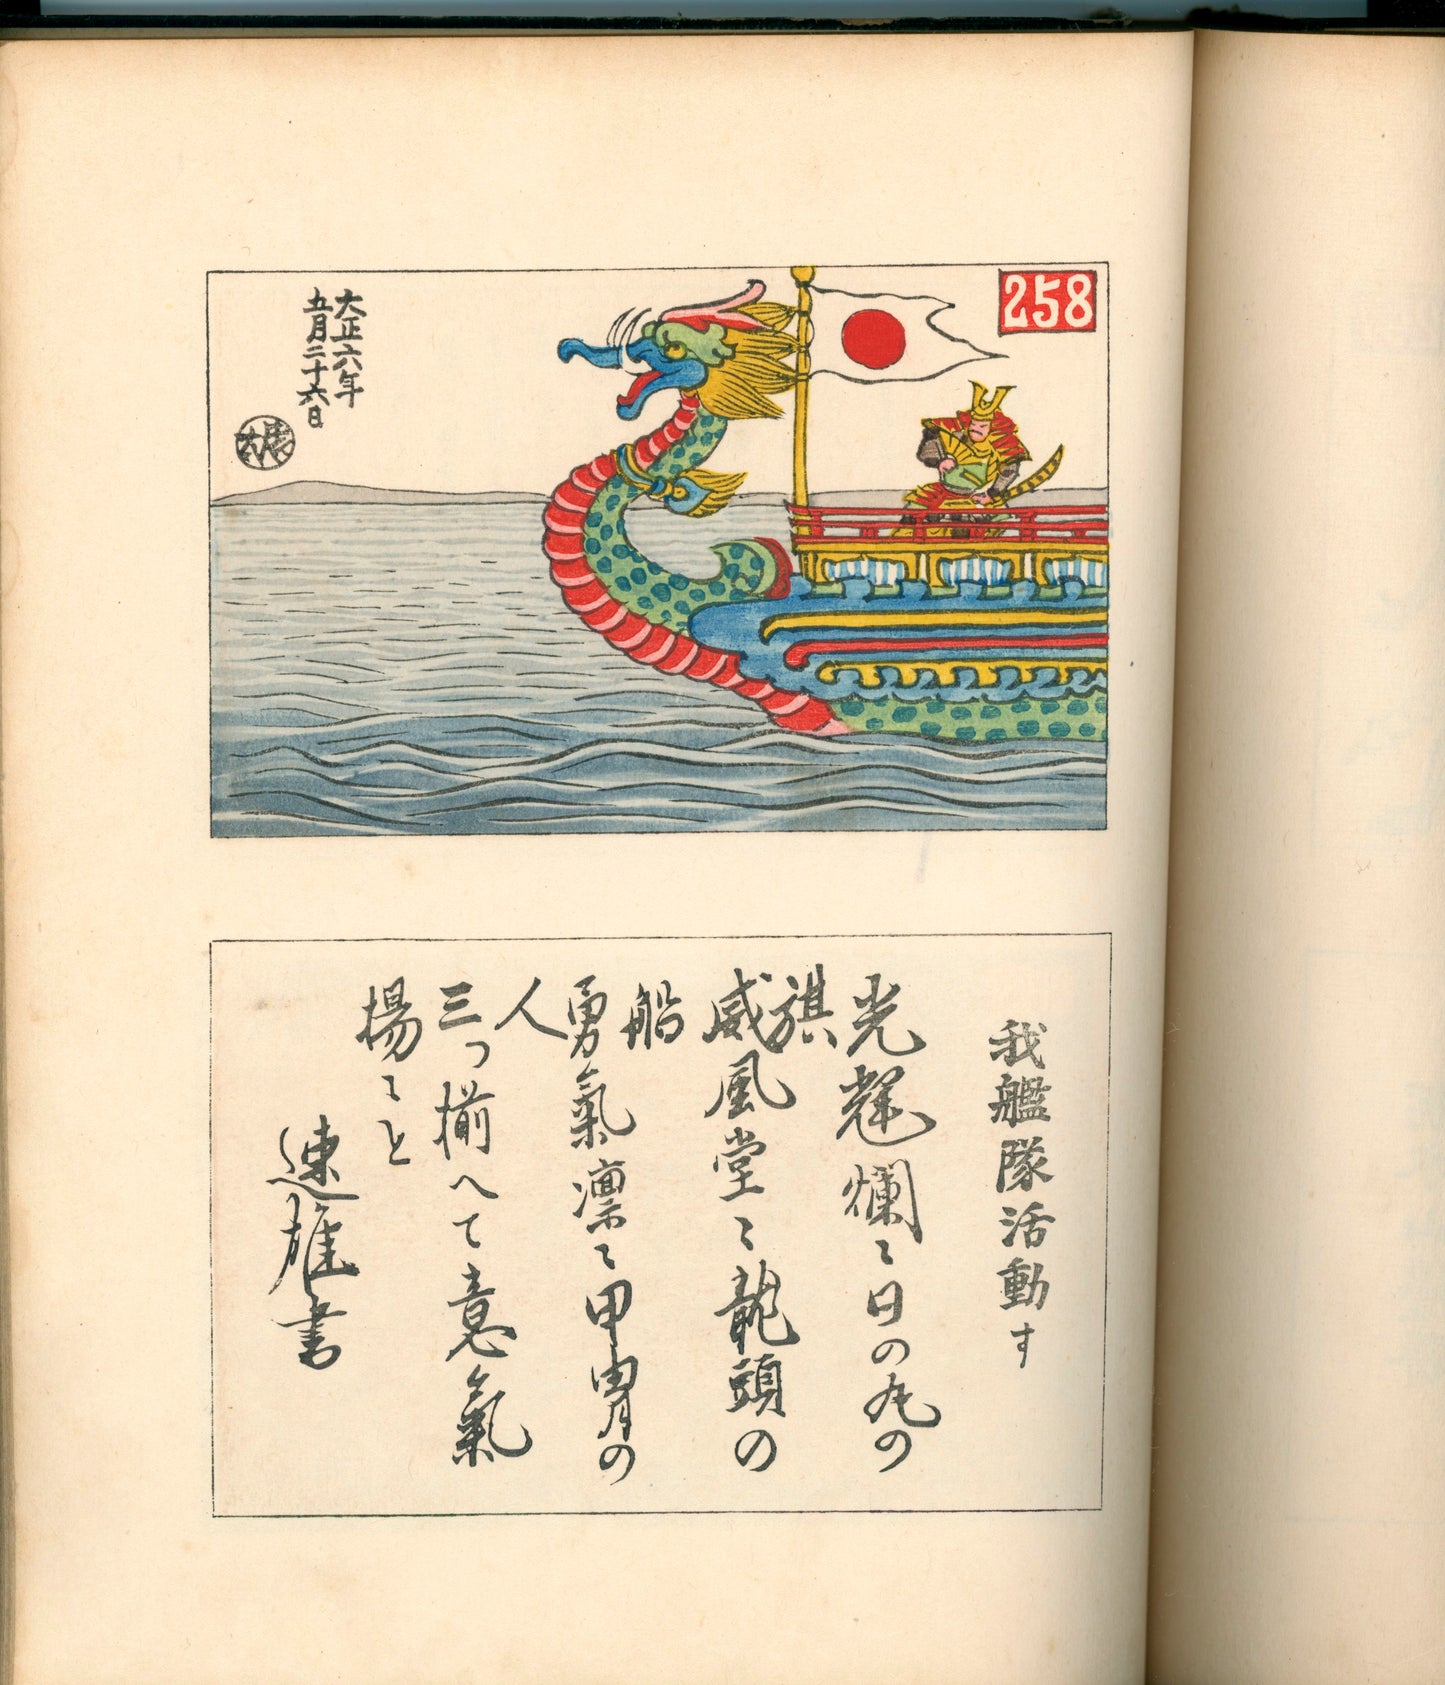 258
大正六年
五月二十六日
我艦隊活動す
光輝爛〻日の丸の
旗
威風堂〻龍頭の
船
勇氣凛〻甲冑の
人
三つ揃へて意氣
揚〻と
速雄書